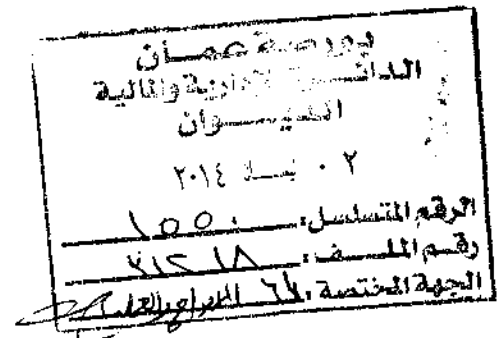 بورصة عمان
الدائرة الإدارية والمالية
الديوان
٠٢ نيسان ٢٠١٤
الرقم المتسلسل: ١٥٥٠
رقم الملف:
الجهة المختصة: